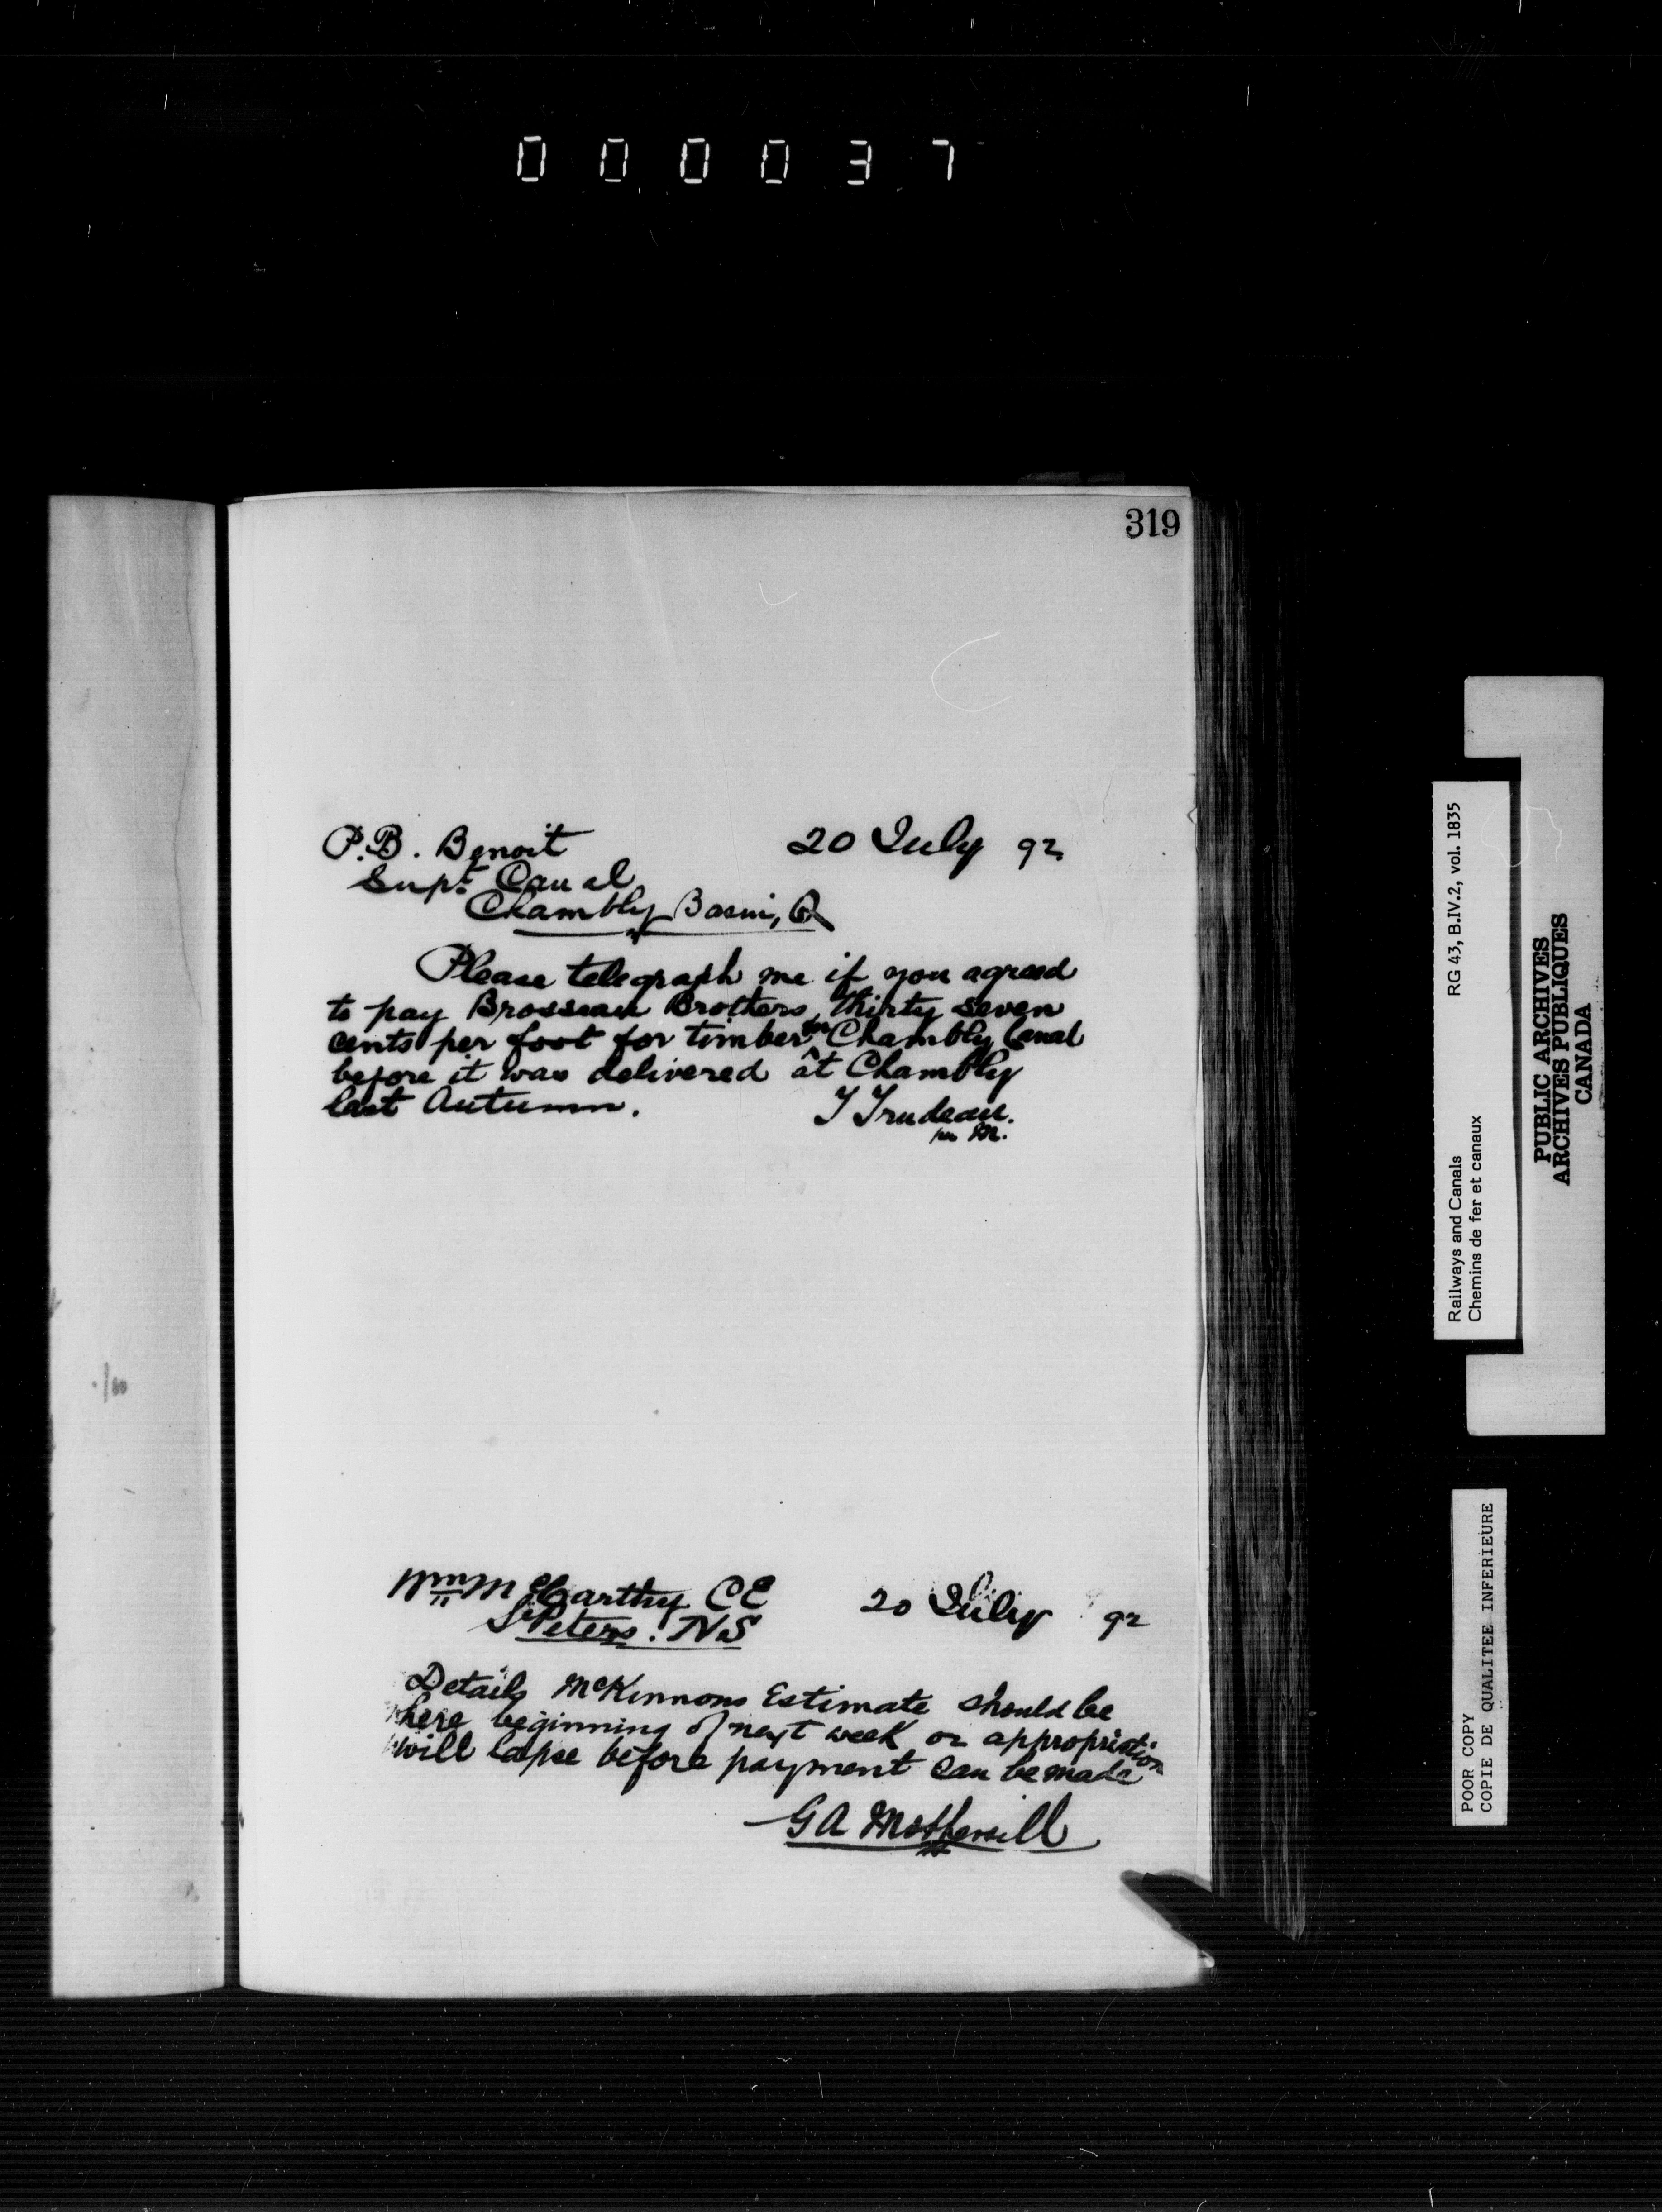 000037
319
P.B. Benoit 20 July 92
Supt Canal
Chambly Basin, Q
Please telegraph me if you agreed
to pay Brosseau Brothers thirty seven
cents per foot for timber for Chambly Canal
before it was delivered at Chambly
last Autumn.
T Trudeau.
per M.
Wm McCarthy CE 20 July 92
St Peters. N.S
Details McKinnons Estimate should be
here beginning of next week or appropriation
will lapse before payment can be made
G A Mothersill
Railways and Canals RG 43, B.IV.2, vol. 1835
Chemins de fer et canaux
PUBLIC ARCHIVES
ARCHIVES PUBLIQUES
CANADA
POOR COPY
COPIE DE QUALITEE INFERIEURE